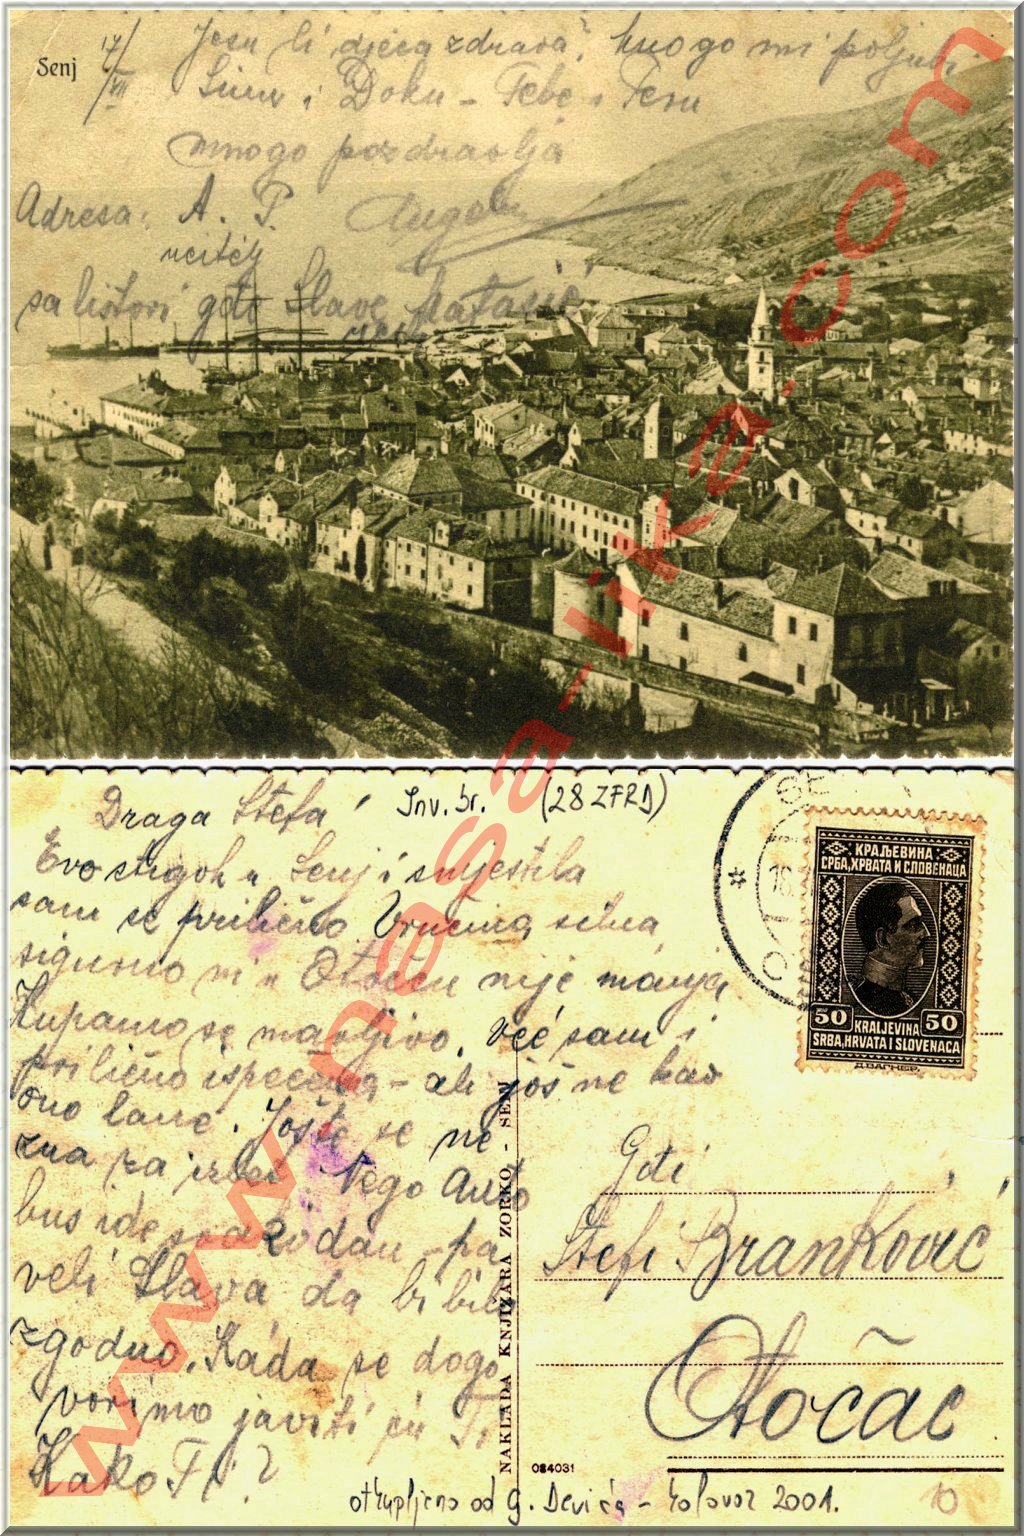 Senj
17/VII
Jesu li djeca zdrava? mnogo mi poljubi
i Doku - Febe i
mnogo pozdravlja
Adresa: A. P.
učitelj
sa listovi gđo Slave Matasić
www.nasa-lika.com
Draga Štefa! Inv. br. (28 ZFRD)
Evo stigoh u Senj i smjestila
sam se prilično. Vrućina silna,
sigurno ni u Otočcu nije manja
Kupamo se marljivo, već sam i
prilično ispečena - ali još ne kao
ono lane. Jošte se ne
zna za izlet. Nego Auto
bus ide svaki dan - pa
veli Slava da bi bilo
zgodno. Kada se dogo
vorimo javiti ću Ti
Kako Ti?
КРАЉЕВИНА
СРБА, ХРВАТА И СЛОВЕНАЦА
50 50
KRALJEVINA
SRBA, HRVATA I SLOVENACA
Д.ВАГНЕР.
NAKLADA KNJIŽARA ZORKO - SENJ
Gđi
Štefi Branković
Otočac
084031
otkupljeno od G. Devića - kolovoz 2001.
10